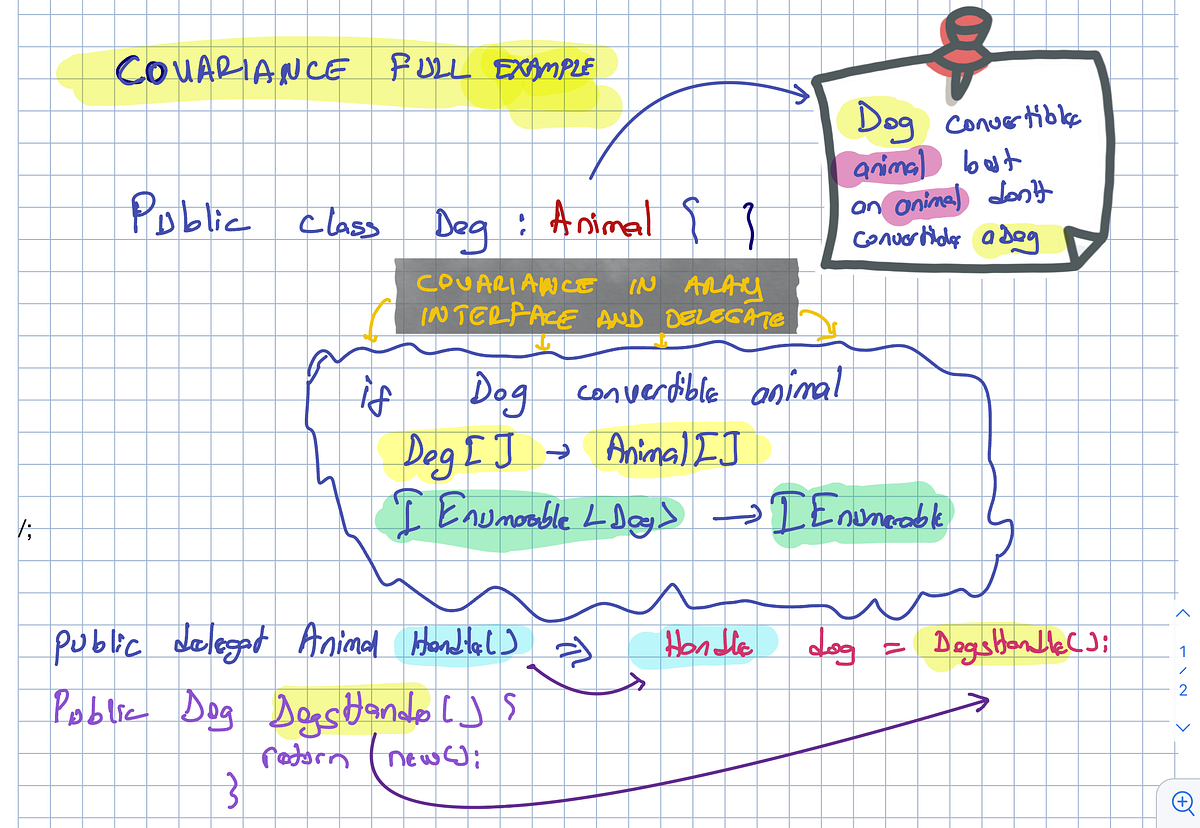 COVARIANCE FULL EXAMPLE
Dog convertible
animal but
an animal don't
convertible a Dog
Public class Dog : Animal { }
COVARIANCE IN ARAY
INTERFACE AND DELEGATE
if Dog convertible animal
Dog[] → Animal[]
IEnumerable <Dog> → IEnumerable
/;
public delegat Animal Handle() => Handle dog = DogsHandle();
Public Dog DogsHandle() {
return new();
}
1
/
2